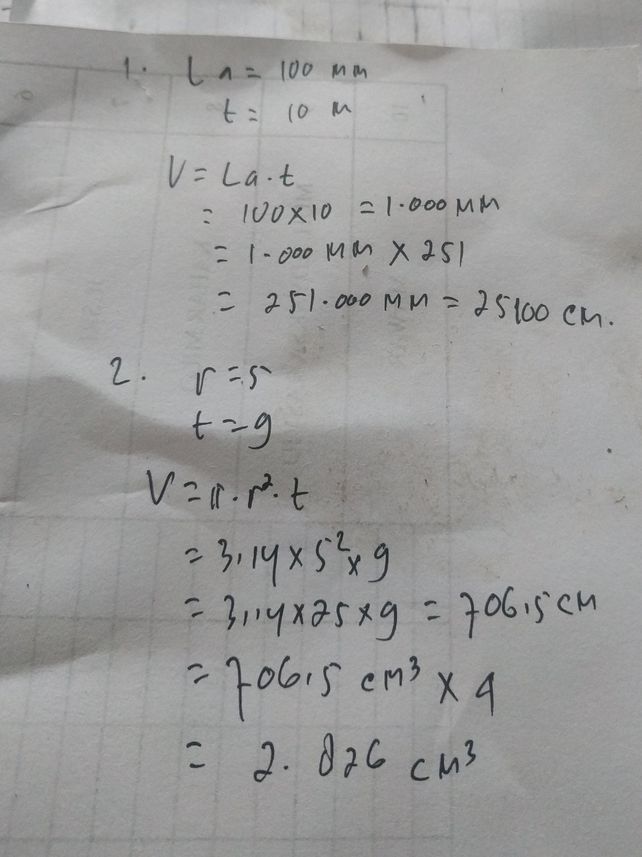 1. La = 100 mm
t = 10 m
V = La . t
= 100 x 10 = 1.000 mm
= 1.000 mm x 251
= 251.000 mm = 25100 cm.
2. r = 5
t = 9
V = π . r² . t
= 3,14 x 5² x 9
= 3,14 x 25 x 9 = 706,5 cm
= 706,5 cm³ x 4
= 2.826 cm³